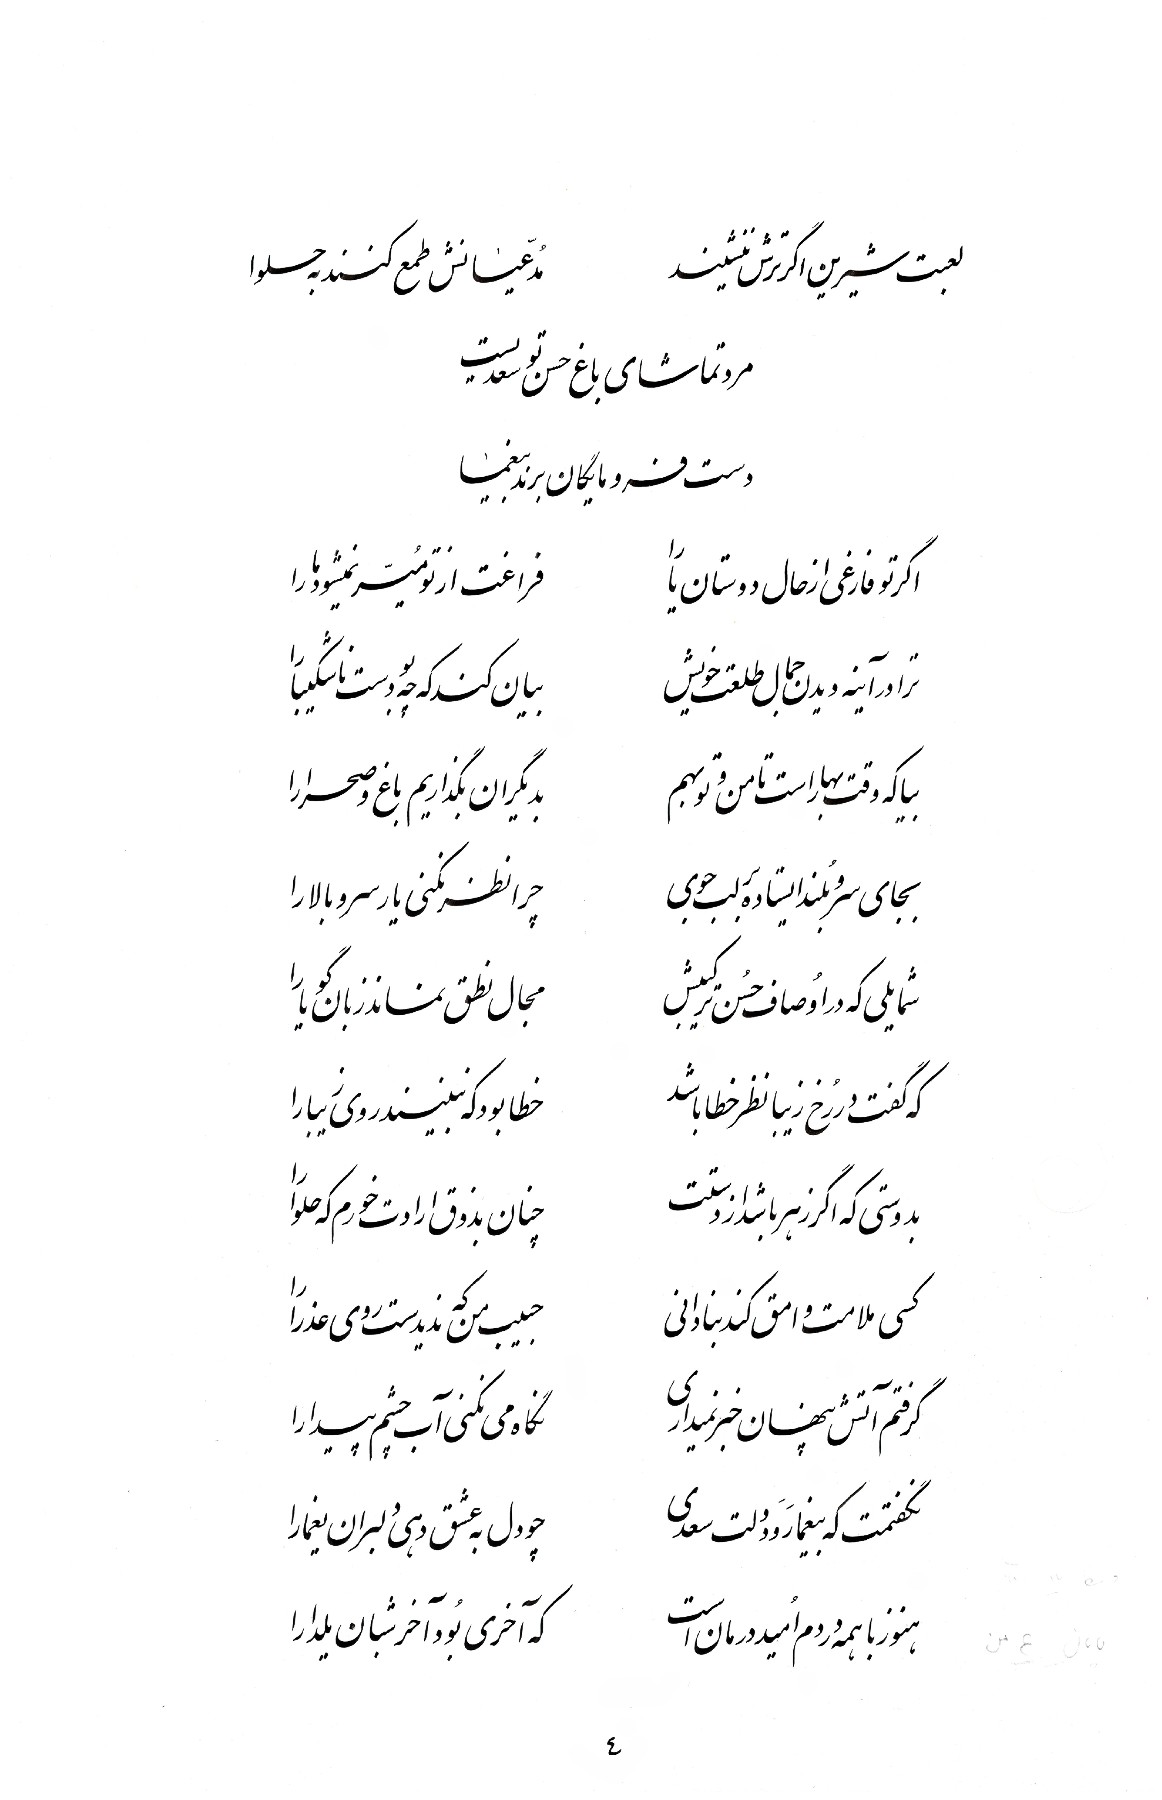 لعبت شیرین اگر ترش ننشیند مدّعیانش طمع کنند به حلوا
مرد تماشای باغ حسن تو سعدیست
دست فرومایگان برند بیغما
اگر تو فارغی از حال دوستان یارا فراغت از تو میسّر نمیشود ما را
ترا در آینه دیدن جمال طلعت خویش بیان کند که چه بودست ناشکیبا را
بیا که وقت بهار است تا من و تو بهم بدیگران بگذاریم باغ و صحرا را
بجای سرو بلند ایستاده بر لب جوی چرا نظر نکنی یار سرو بالا را
شمایلی که در اُوصاف حُسن ترکیبش مجال نطق نماند زبان گویا را
که گفت در رُخ زیبا نظر خطا باشد خطا بود که نبینند روی زیبا را
بدوستی که اگر زهر باشد از دستت چنان بذوق ارادت خورم که حلوا را
کسی ملامت وامق کند بنادانی حبیب من که ندیدست روی عذرا را
گرفتم آتش پنهان خبر نمیداری نگاه می نکنی آب چشم پیدا را
نگفتمت که بیغما رَوَد دلت سعدی چو دل به عشق دهی دلبران یغما را
هنوز با همه دردم اُمید درمان است که آخری بُود آخر شبان یلدا را
٤